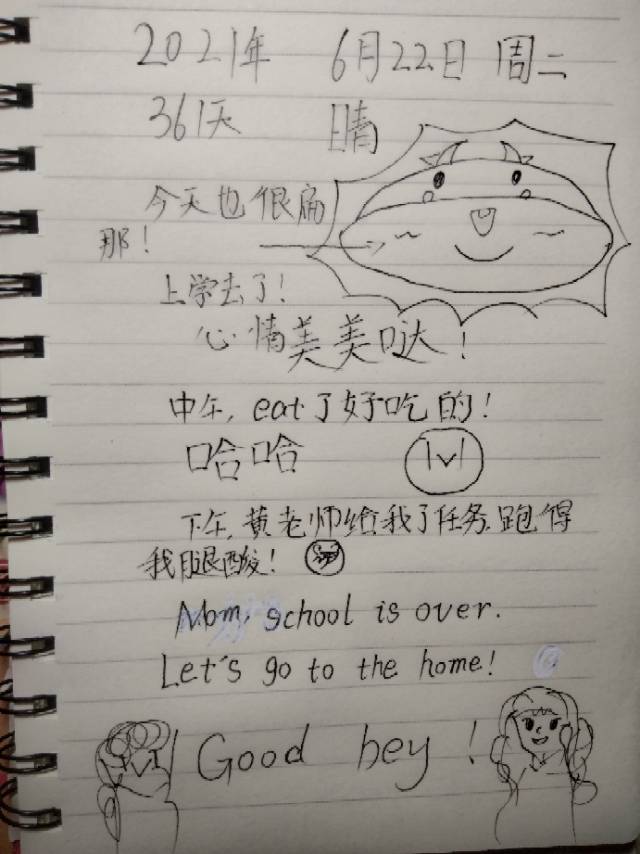 2021年 6月22日 周二
361天 晴
今天也很扁
那！
上学去了！
心情美美哒！
中午，eat了好吃的！
哈哈
下午，黄老师给我了任务，跑得
我腿酸！
Mom, school is over.
Let's go to the home!
Good bey!